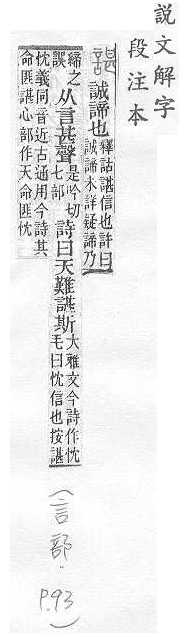 説文解字
段注本
諶 誠諦也 釋詁諶信也許曰
誠諦未詳疑諦乃
締之
誤 从言甚聲 是吟切
七部 詩曰天難諶斯 大雅文今詩作忱
毛曰忱信也按諶
忱義同音近古通用今詩其
命匪諶心部作天命匪忱
(言部.
P.93)